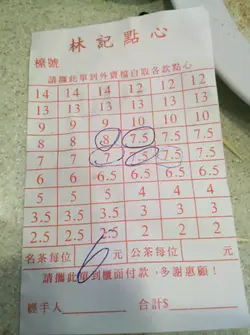 林記點心
檯號
請攜此單到外賣檔自取各款點心
14 14 14 12 12
13 13 13 10 10
9 9 10 10 10
8 8 8 7.5 7.5
7 7 7 7.5 7.5
6 6 6.5 6.5 6.5
5 5 4 4 4
3.5 3.5 3 3 3
2.5 2.5 2 2 2
名茶每位 6 元 公茶每位 元
請攜此單到櫃面付款,多謝惠顧!
經手人 合計$